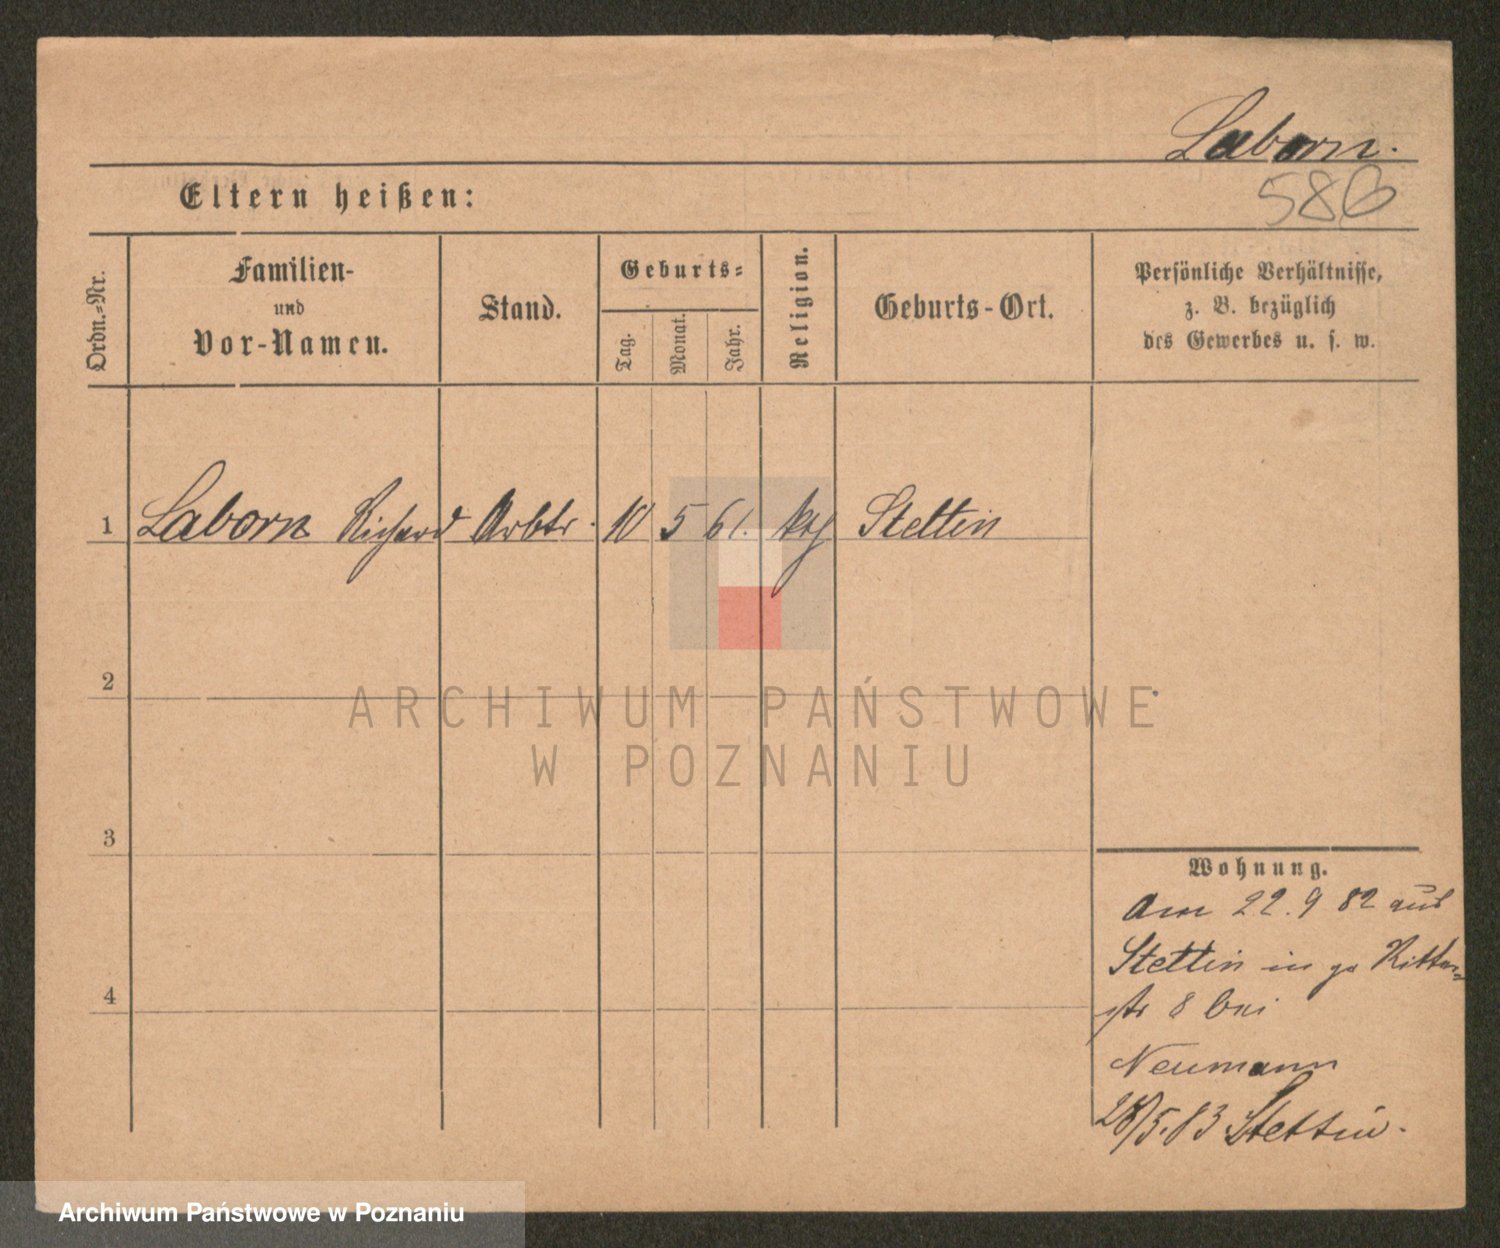 Laborn.
586
Eltern heißen:
Ordn.-Nr.
Familien-
und
Vor-Namen.
Stand.
Geburts-
Tag.
Monat.
Jahr.
Religion.
Geburts-Ort.
Persönliche Verhältnisse,
z. B. bezüglich
des Gewerbes u. s. w.
1 Laborn Richard Arbtr. 10 5 61. Stettin
2
3
4
ARCHIWUM PAŃSTWOWE
W POZNANIU
Wohnung.
Am 22.9 82 aus
Stettin in Ritter-
str 8 bei
Neumann
28/5.83 Stettin.
Archiwum Państwowe w Poznaniu